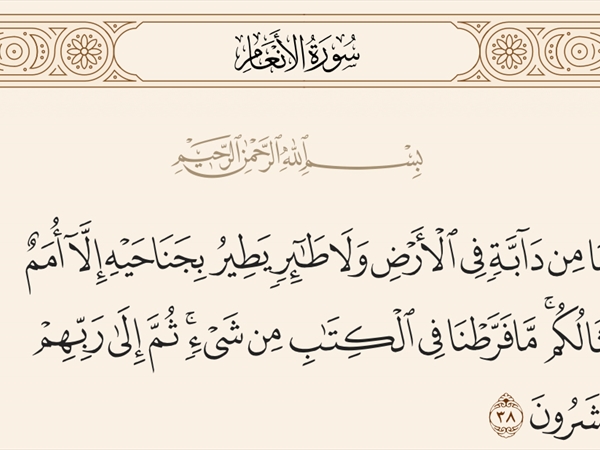 سُورَةُ الأَنْعَامِ
بِسْمِ ٱللَّهِ ٱلرَّحْمَٰنِ ٱلرَّحِيمِ
مِن دَآبَّةٍۢ فِى ٱلْأَرْضِ وَلَا طَـٰٓئِرٍۢ يَطِيرُ بِجَنَاحَيْهِ إِلَّآ أُمَمٌ
مَّا فَرَّطْنَا فِى ٱلْكِتَـٰبِ مِن شَىْءٍۢ ۚ ثُمَّ إِلَىٰ رَبِّهِمْ
٣٨